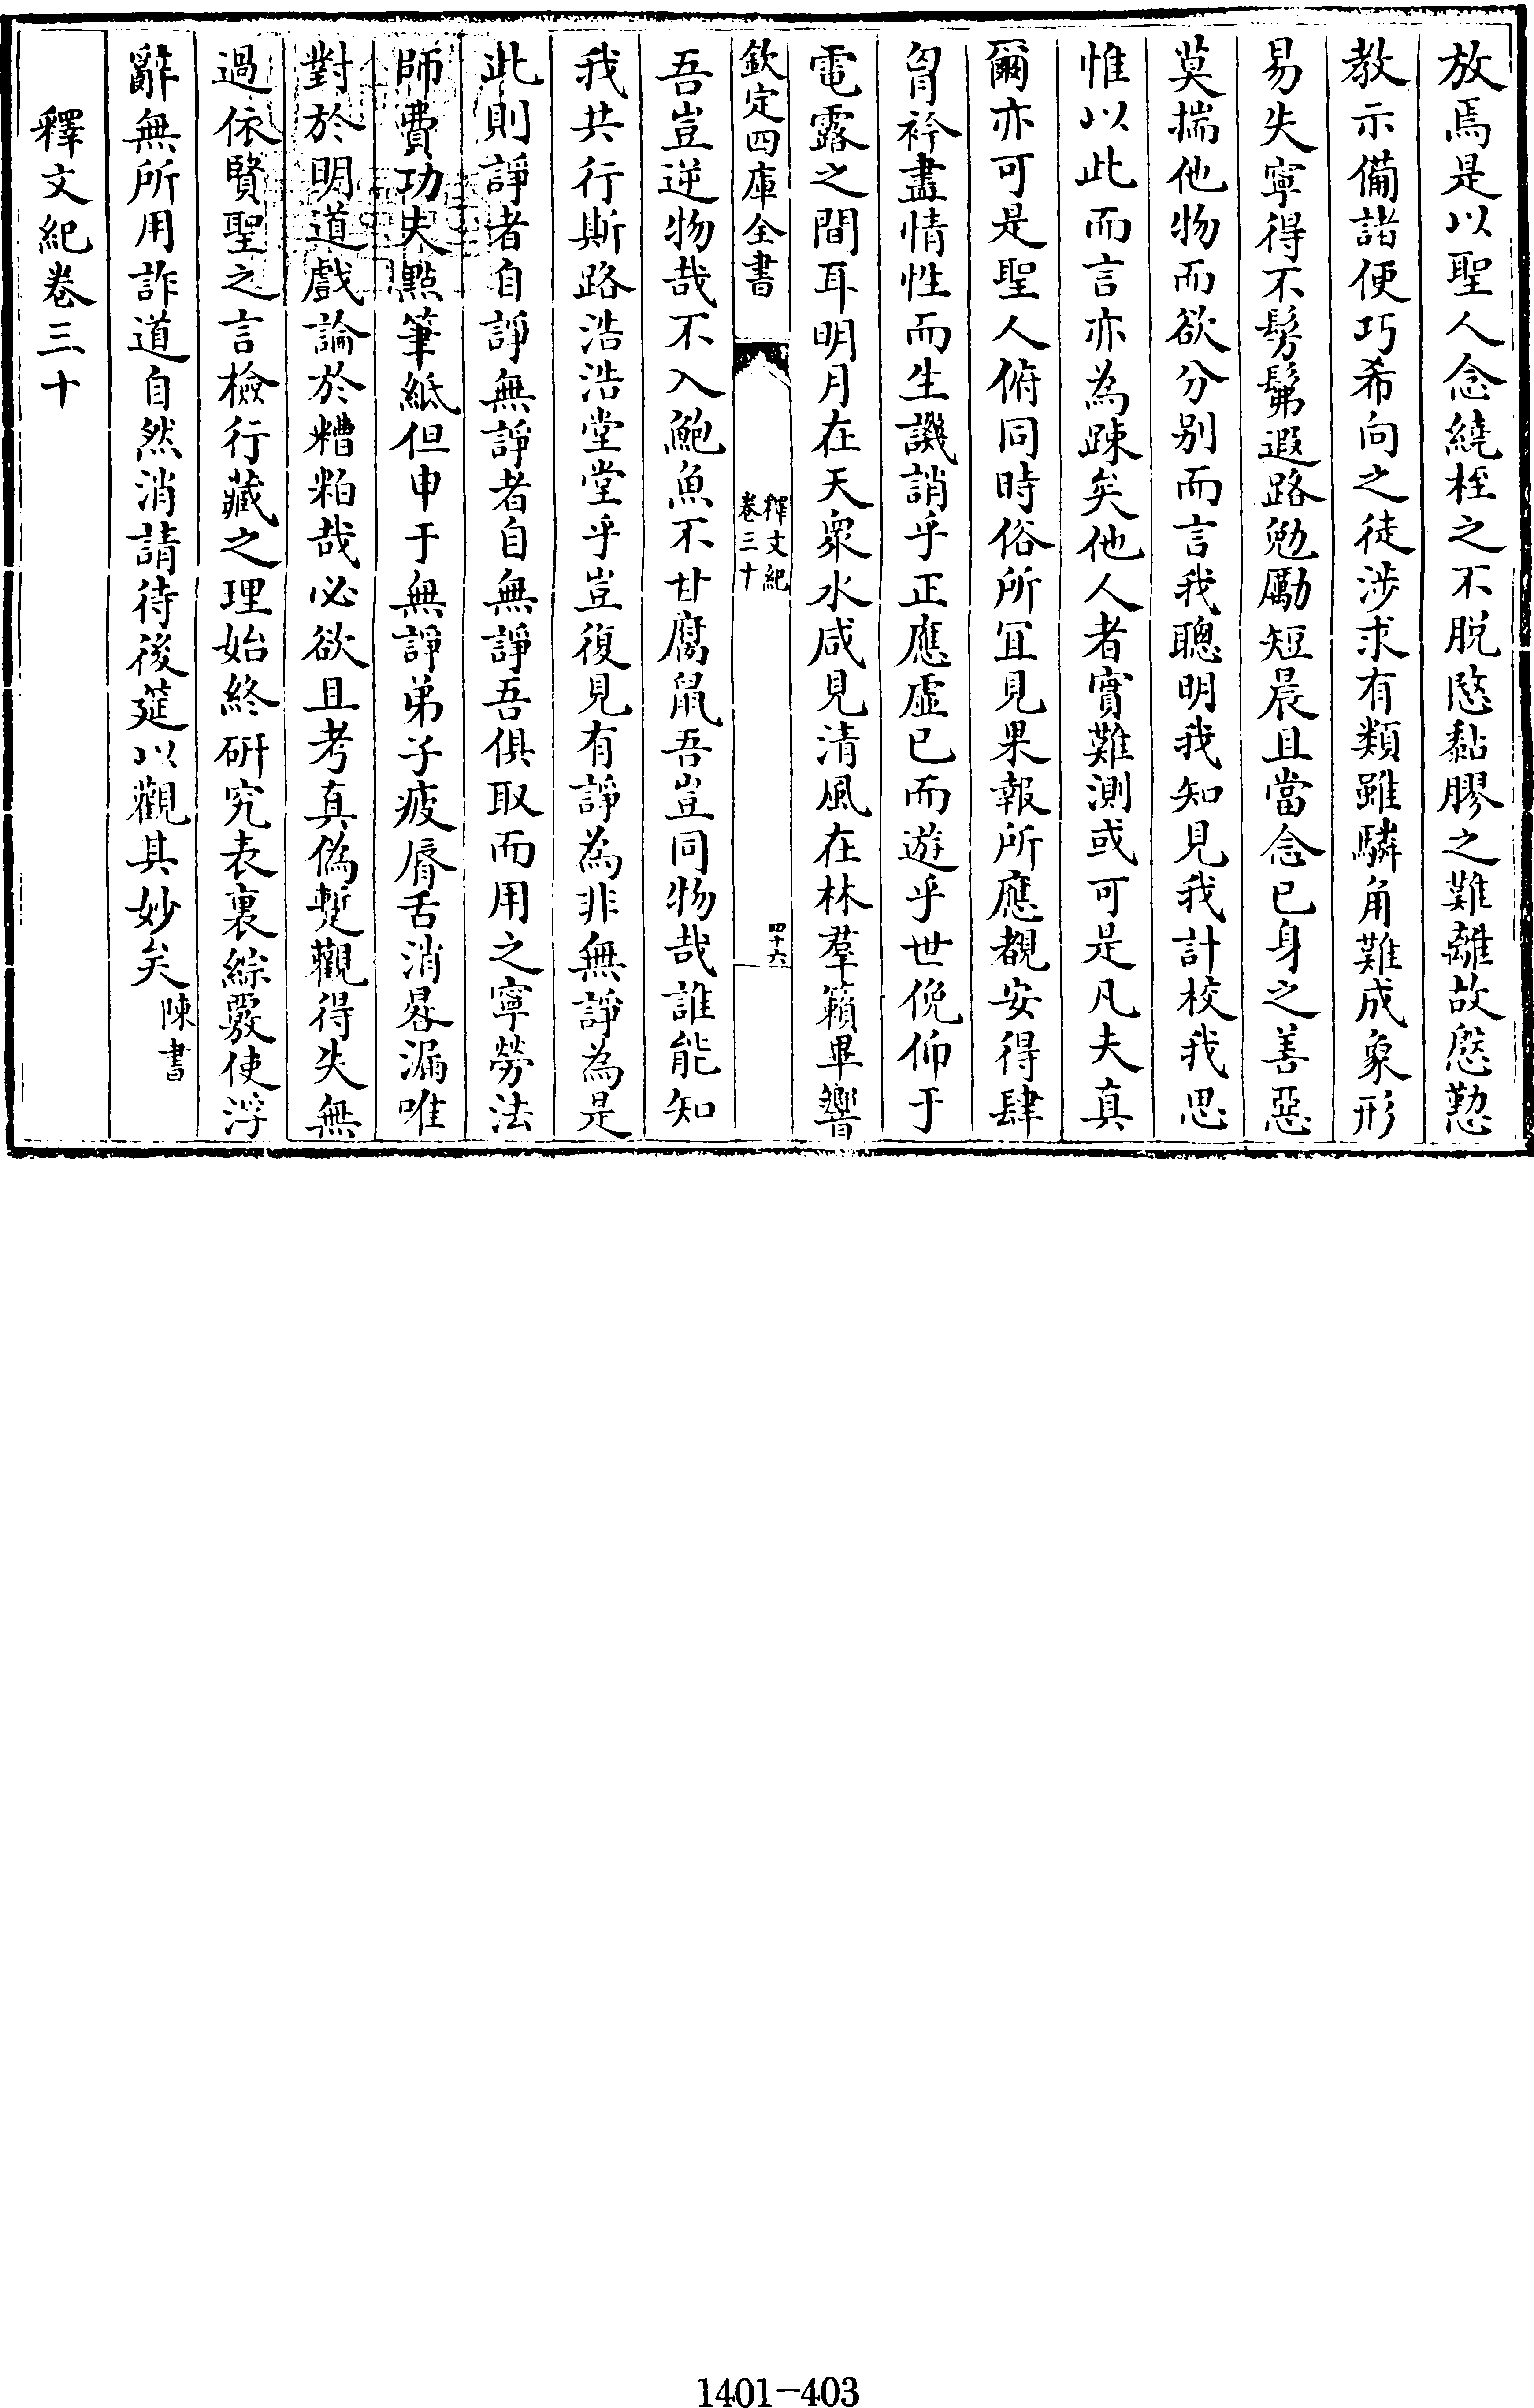 放焉是以聖人念繞桎之不脫愍黏膠之難離故慇懃
教示備諸便巧希向之徒涉求有類雖驎角難成象形
易失寧得不髣髴遐路勉勵短晨且當念已身之善惡
莫揣他物而欲分别而言我聰明我知見我計校我思
惟以此而言亦為疎矣他人者實難測或可是凡夫真
爾亦可是聖人俯同時俗所宜見果報所應覩安得肆
胷衿盡情性而生譏誚乎正應虛已而遊乎世俛仰于
電露之間耳明月在天衆水咸見清風在林羣籟畢響
欽定四庫全書
釋文紀
卷三十
四十六
吾豈逆物哉不入鮑魚不甘腐鼠吾豈同物哉誰能知
我共行斯路浩浩堂堂乎豈復見有諍為非無諍為是
此則諍者自諍無諍者自無諍吾俱取而用之寧勞法
師費功夫點筆紙但申于無諍弟子疲脣舌消晷漏唯
對於明道戲論於糟粕哉必欲且考真偽蹔觀得失無
過依賢聖之言檢行藏之理始終研究表裏綜覈使浮
辭無所用詐道自然消請待後筵以觀其妙矣陳書
釋文紀卷三十
1401-403